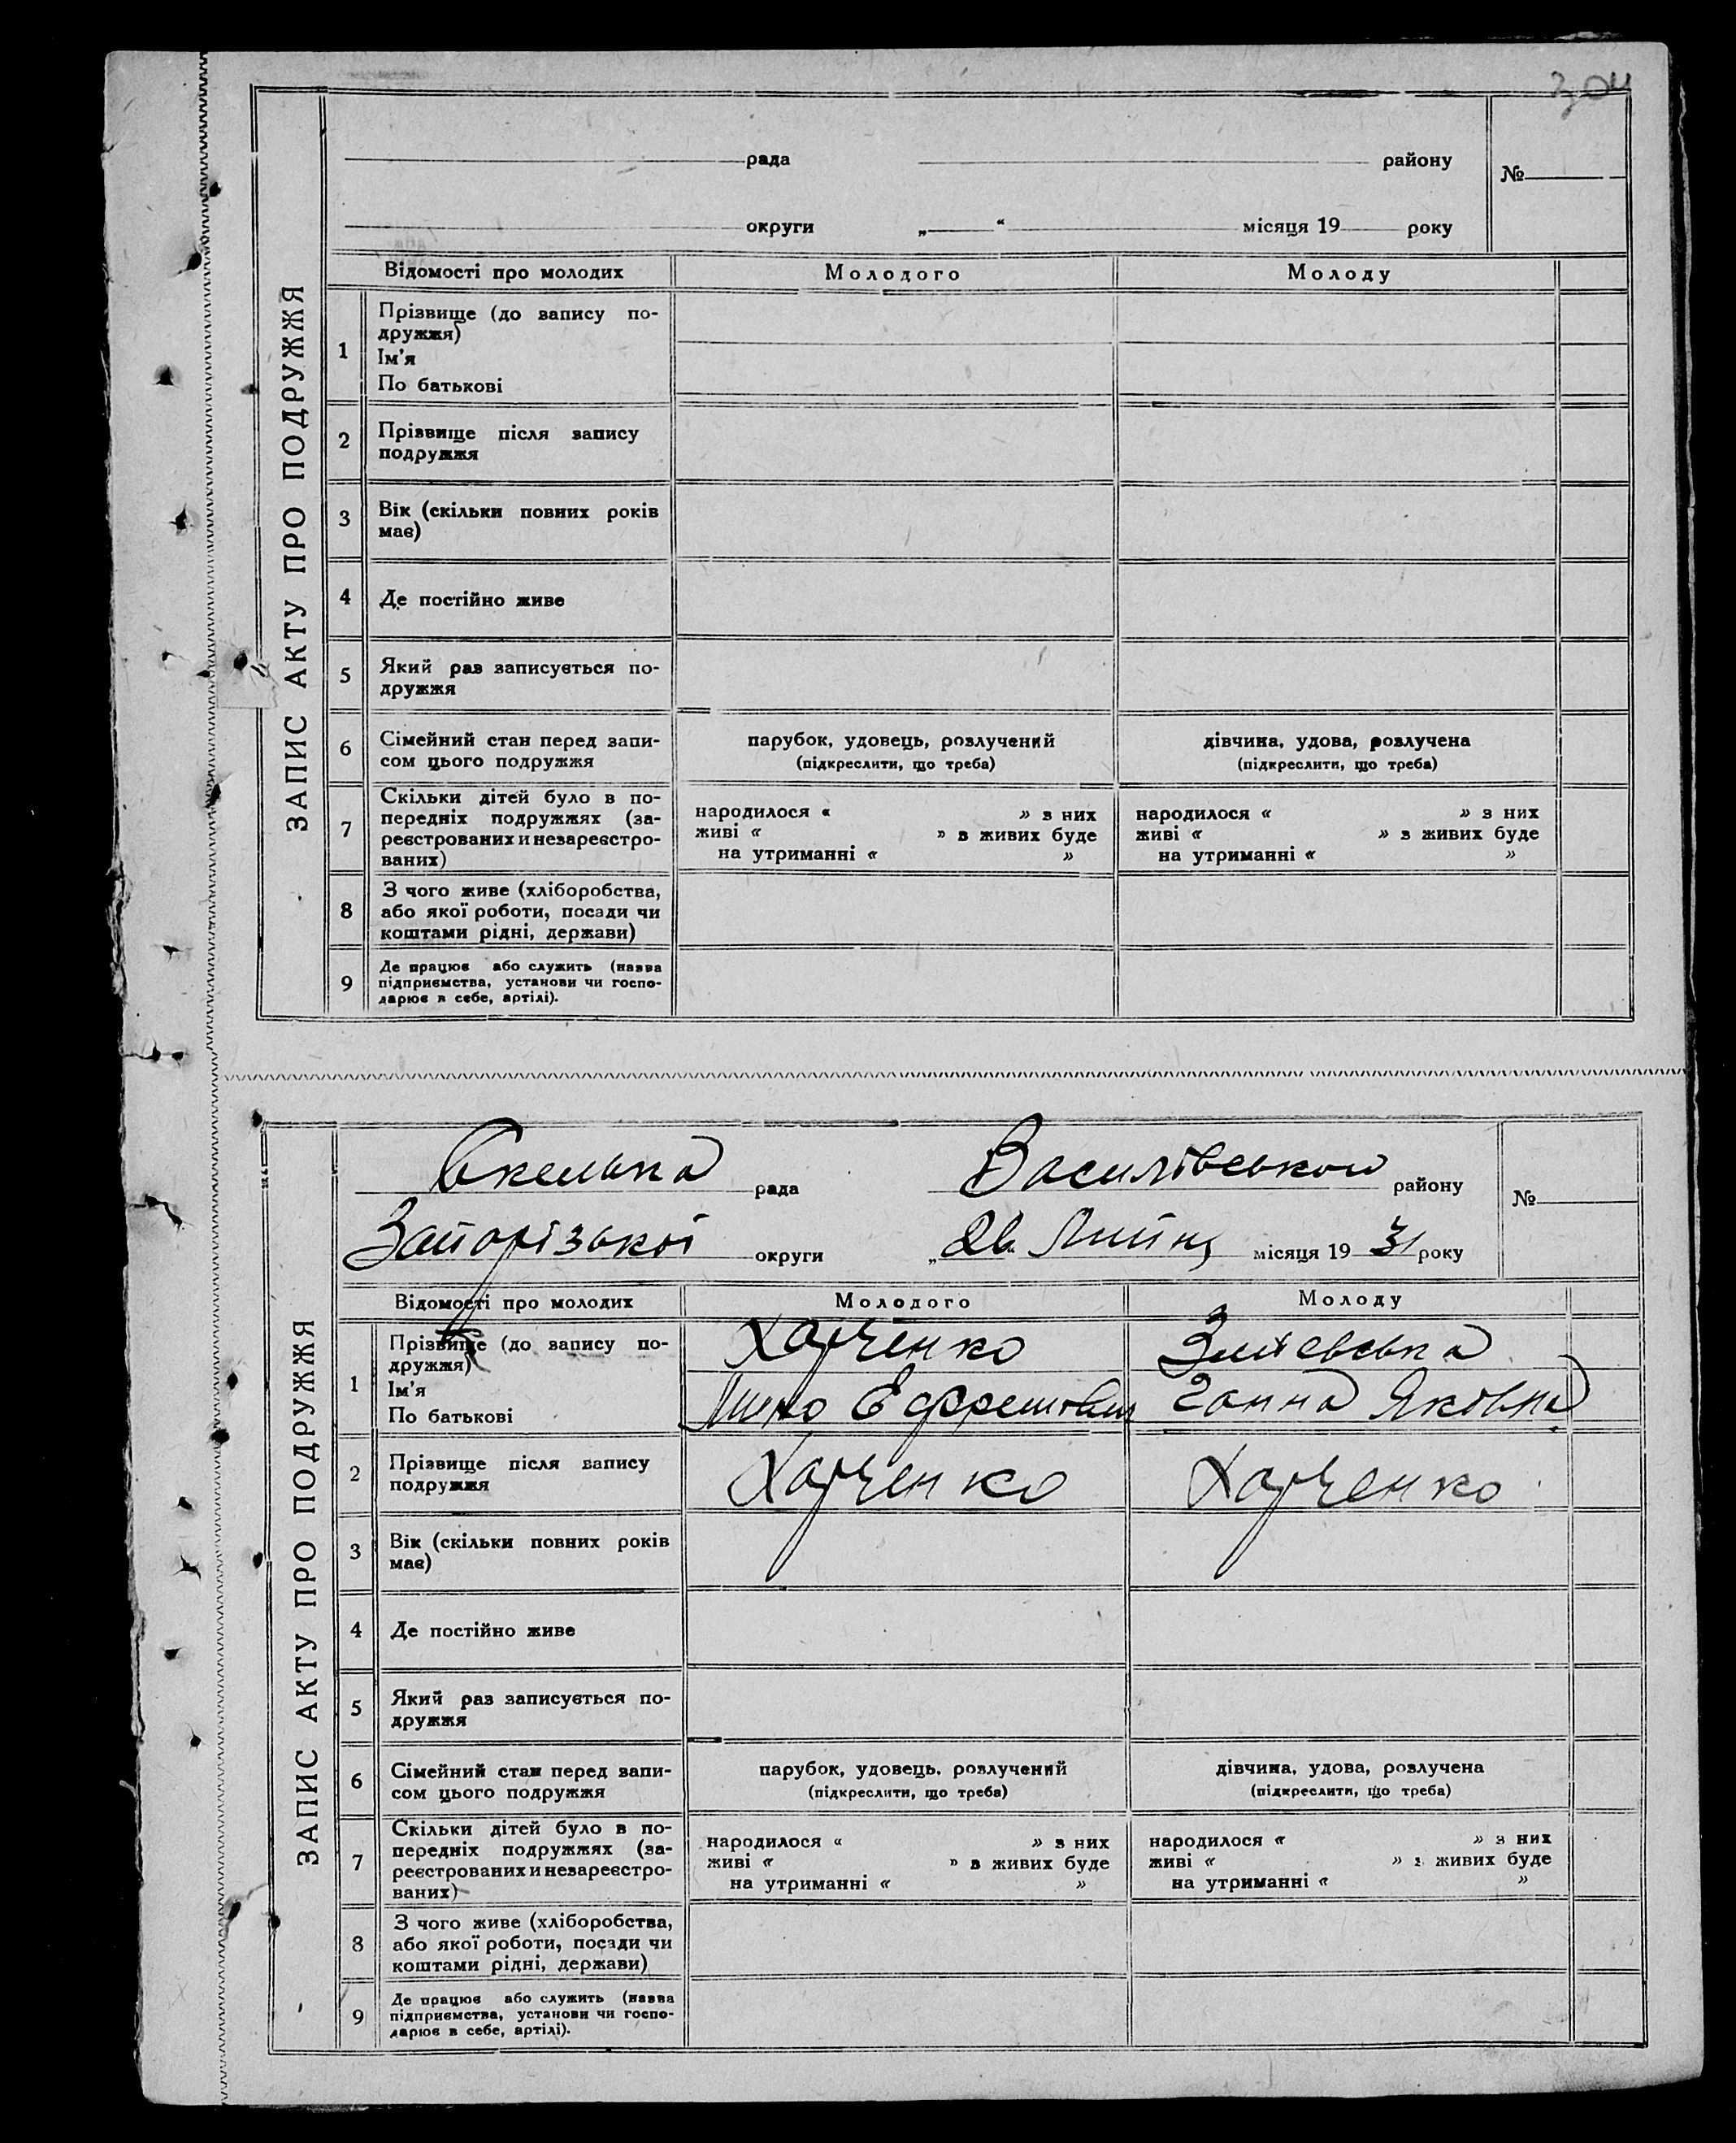 304
ЗАПИС АКТУ ПРО ПОДРУЖЖЯ
рада району №
округи „ “ місяця 19 року
Відомості про молодих Молодого Молоду
1 Прізвище (до запису по-
дружжя)
Ім'я
По батькові
2 Прізвище після запису
подружжя
3 Вік (скільки повних років
має)
4 Де постійно живе
5 Який раз записується по-
дружжя
6 Сімейний стан перед запи-
сом цього подружжя
парубок, удовець, розлучений
(підкреслити, що треба)
дівчина, удова, розлучена
(підкреслити, що треба)
7 Скільки дітей було в по-
передніх подружжях (за-
реєстрованих и незареєстро-
ваних)
народилося « » з них
живі « » з живих буде
на утриманні « »
народилося « » з них
живі « » з живих буде
на утриманні « »
8 З чого живе (хліборобства,
або якої роботи, посади чи
коштами рідні, держави)
9 Де працює або служить (назва
підприємства, установи чи госпо-
дарює в себе, артілі).
ЗАПИС АКТУ ПРО ПОДРУЖЖЯ
Скелька рада Василівського району №
Запорізької округи „26 Липня місяця 1931 року
Відомості про молодих Молодого Молоду
1 Прізвище (до запису по-
дружжя)
Ім'я
По батькові
Харченко
Ганна Яковна
2 Прізвище після запису
подружжя
Харченко Харченко
3 Вік (скільки повних років
має)
4 Де постійно живе
5 Який раз записується по-
дружжя
6 Сімейний стан перед запи-
сом цього подружжя
парубок, удовець, розлучений
(підкреслити, що треба)
дівчина, удова, розлучена
(підкреслити, що треба)
7 Скільки дітей було в по-
передніх подружжях (за-
реєстрованих и незареєстро-
ваних)
народилося « » з них
живі « » з живих буде
на утриманні « »
народилося « » з них
живі « » з живих буде
на утриманні « »
8 З чого живе (хліборобства,
або якої роботи, посади чи
коштами рідні, держави)
9 Де працює або служить (назва
підприємства, установи чи госпо-
дарює в себе, артілі).